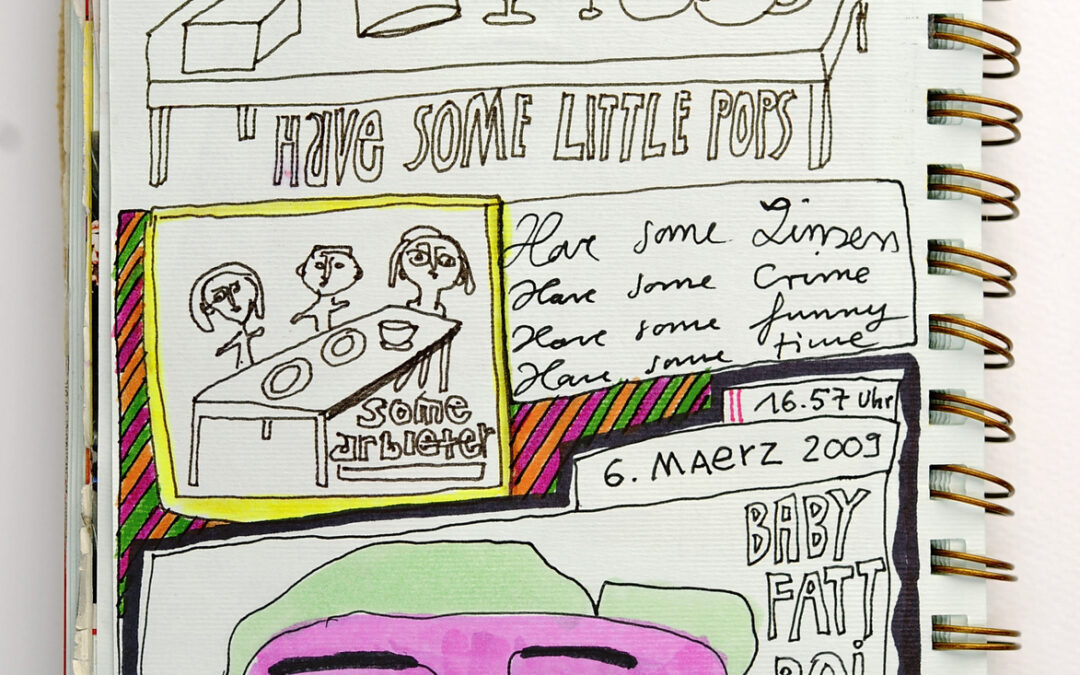 Have SOME LITTLE POPS
Have some Linsen
Have some Crime
Have some funny
Have some time
some
arbieter
16.57 Uhr
6. Maerz 2009
BABY
FATT
BOi